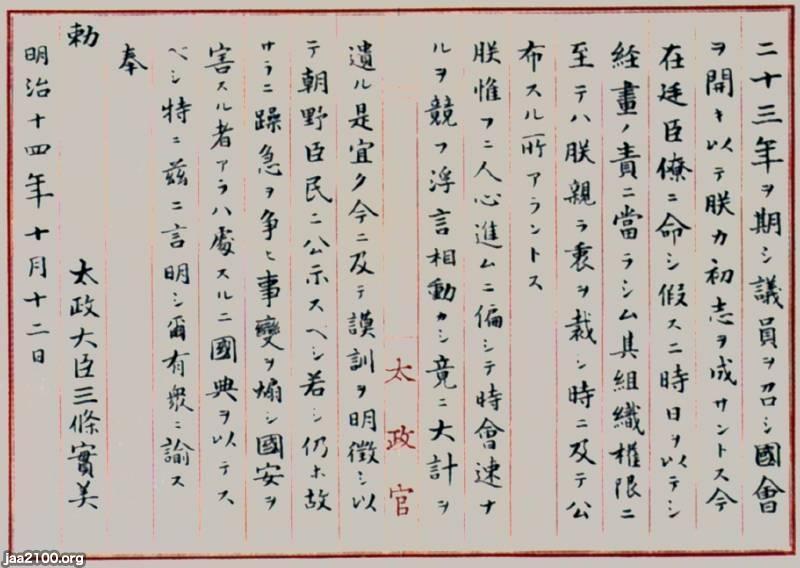 二十三年ヲ期シ議員ヲ召シ國會
ヲ開キ以テ朕カ初志ヲ成サントス今
在廷臣僚ニ命シ假スニ時日ヲ以テシ
經畫ノ責ニ當ラシム其組織權限ニ
至テハ朕親ラ衷ヲ裁シ時ニ及テ公
布スル所アラントス
朕惟フニ人心進ムニ偏シテ時會速ナ
ルヲ競フ浮言相動カシ竟ニ大計ヲ
太政官
遺ル是宜ク今ニ及テ謨訓ヲ明徴シ以
テ朝野臣民ニ公示スヘシ若シ仍ホ故
サラニ躁急ヲ爭ヒ事變ヲ煽シ國安ヲ
害スル者アラハ處スルニ國典ヲ以テス
ヘシ特ニ茲ニ言明シ爾有衆ニ諭ス
奉
勅
太政大臣三條實美
明治十四年十月十二日
jaa2100.org